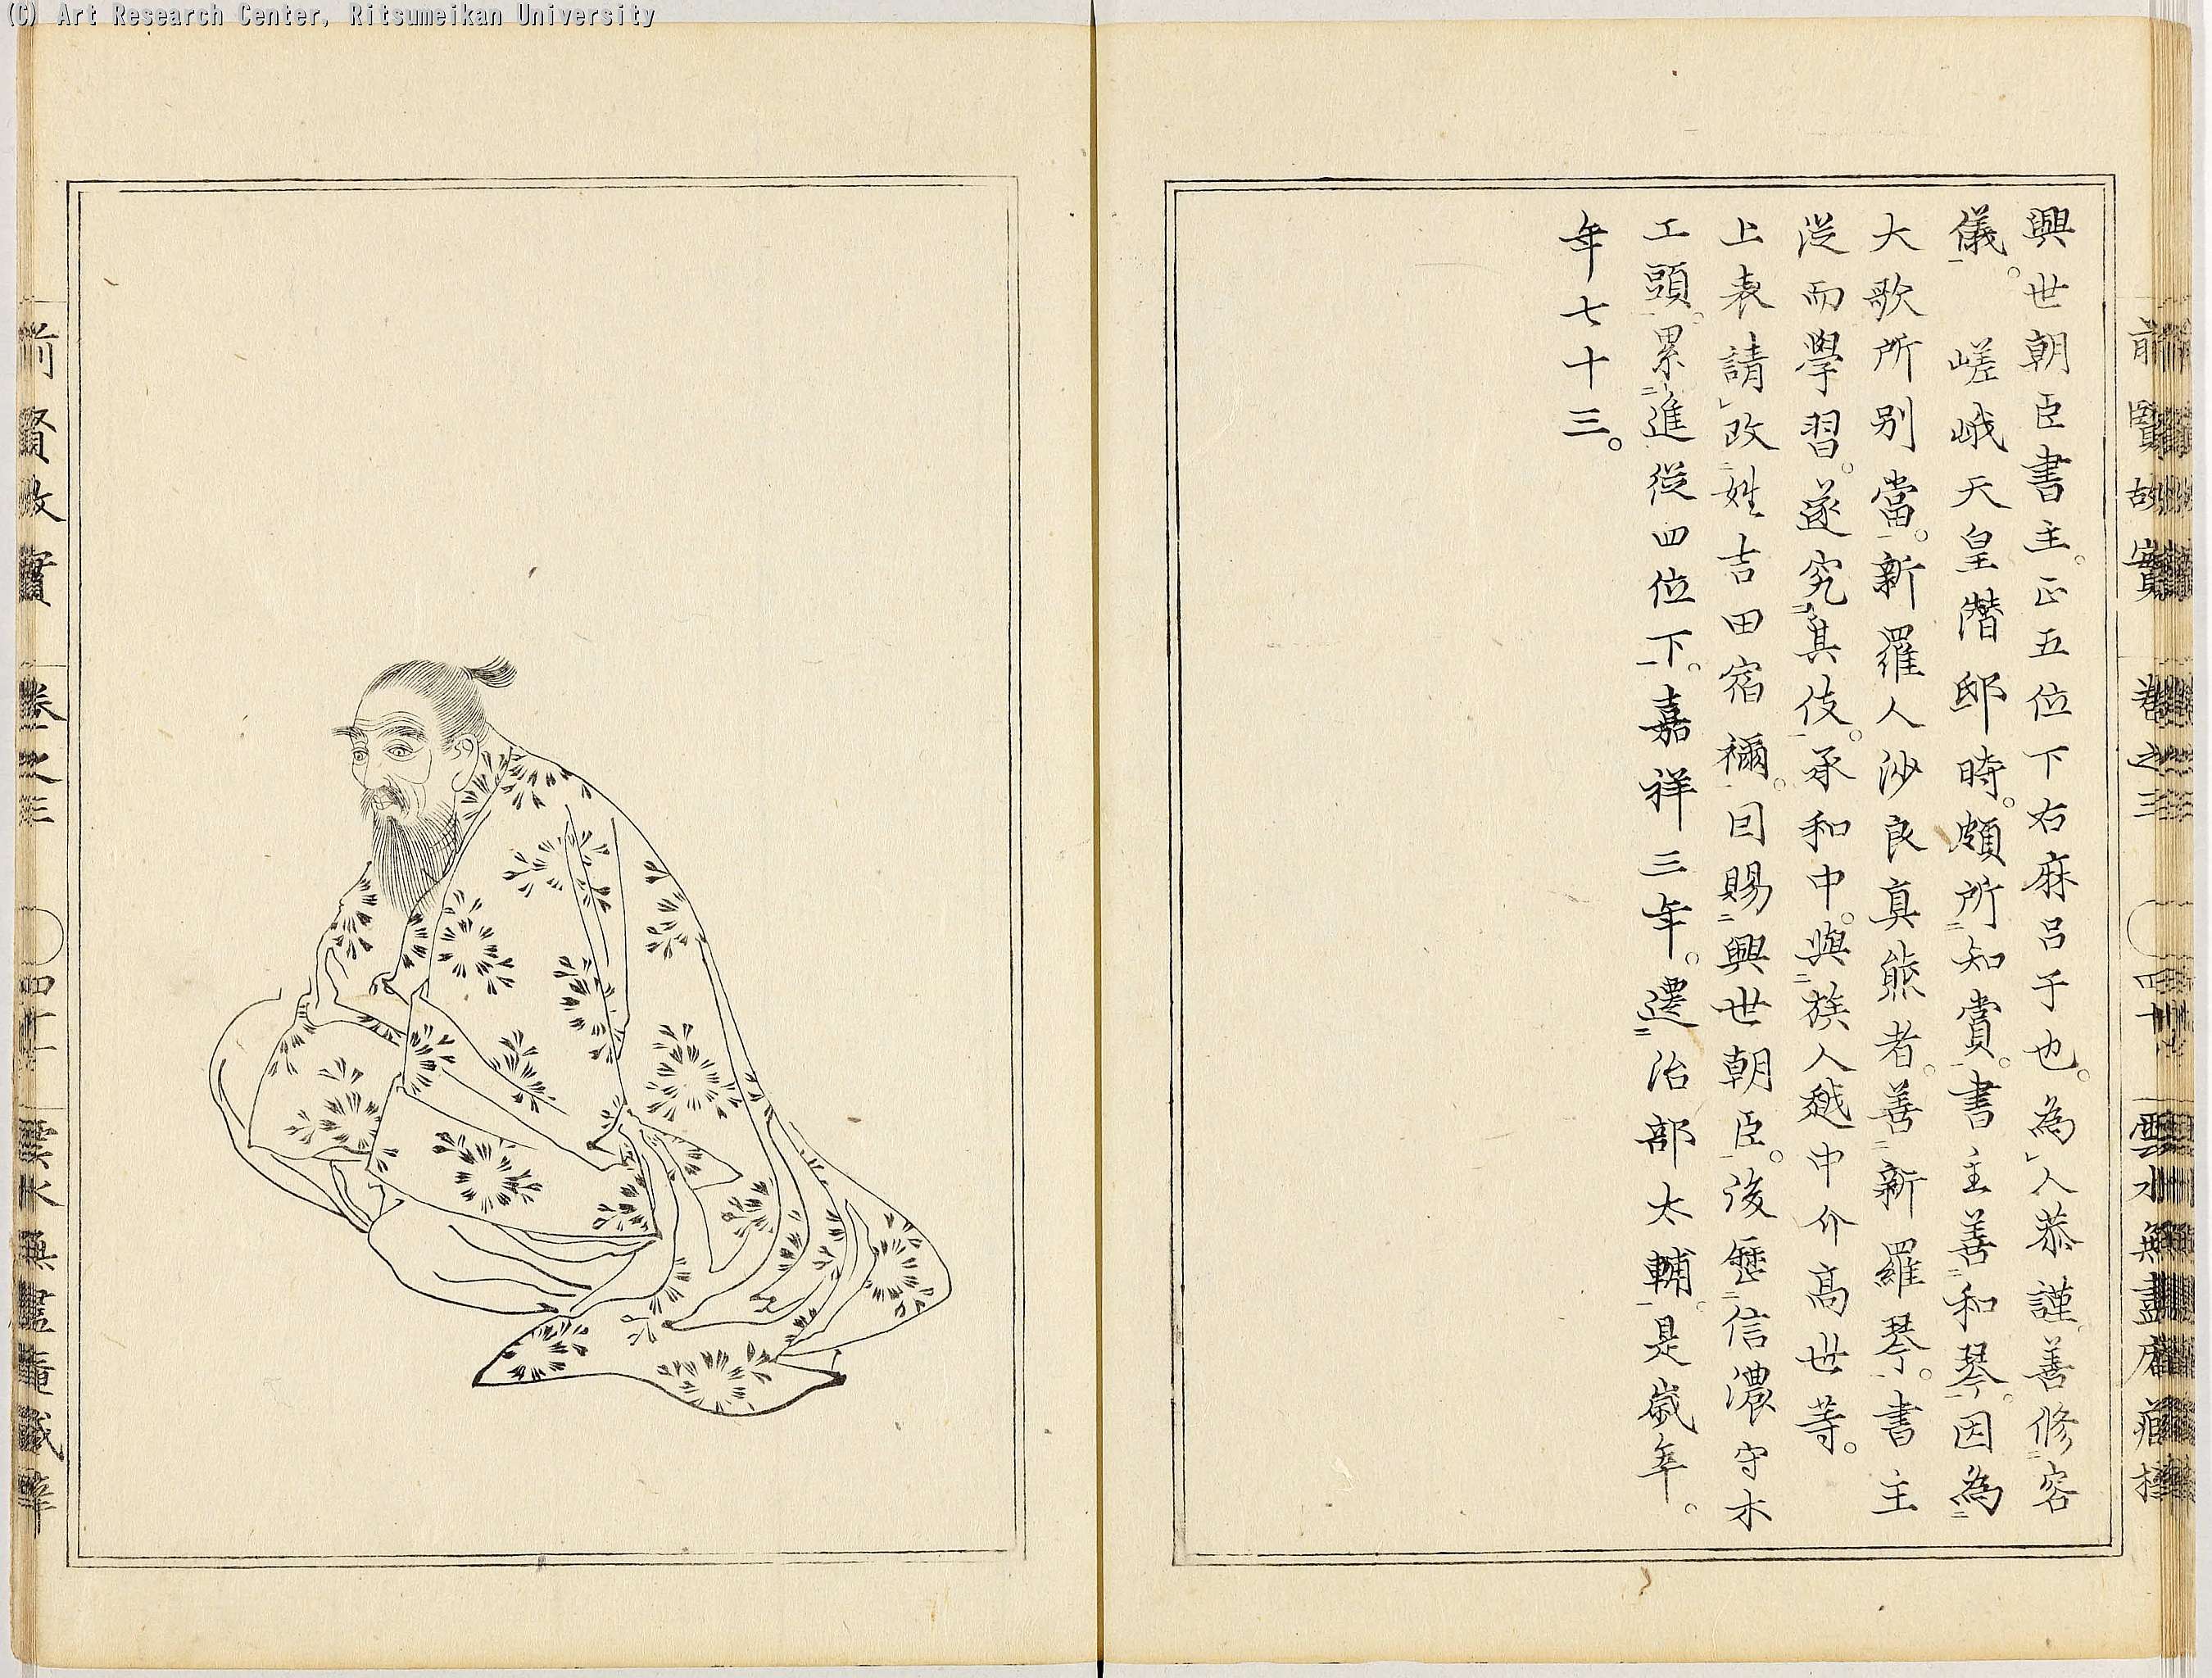 (C) Art Research Center, Ritsumeikan University
前賢故實 卷之三 四十 雲水無盡庵藏梓
興世朝臣書主。正五位下右麻呂子也。為人恭謹。善修容
儀。 嵯峨天皇潛邸時。頗所知賞。書主善和琴。因為
大歌所別當。新羅人沙良真熊者。善新羅琴。書主
從而學習。遂究其伎。承和中。與族人越中介高世等。
上表請改姓吉田宿禰。囙賜興世朝臣。後歷信濃守木
工頭。累進從四位下。嘉祥三年。遷治部太輔。是歲年。
年七十三。
前賢故實 卷之三 四十一 雲水無盡庵藏梓